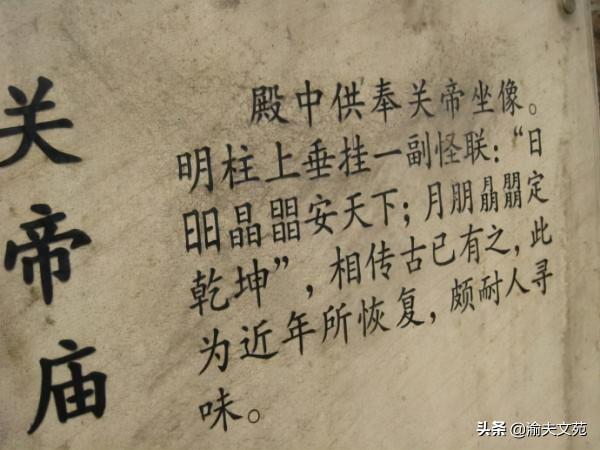 关帝庙
殿中供奉关帝坐像。
明柱上垂挂一副怪联：“日
昍晶𣊫安天下；月朋朤定
乾坤”，相传古已有之，此
为近年所恢复，颇耐人寻
味。
头条 @渝夫文苑